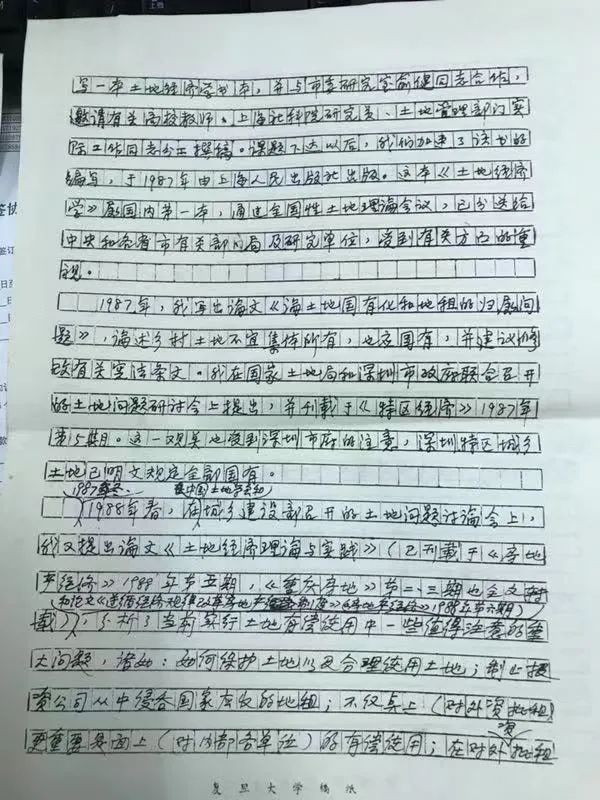 写一本土地经济学书本，并与市委研究室俞健同志合作，
邀请有关高校教师、上海社科院研究员、土地管理部门实
际工作同志分工撰稿。课题下达以后，我们加速了该书的
编写，于1987年由上海人民出版社出版。这本《土地经济
学》属国内第一本，通过全国性土地理论会议，已分送给
中央和各省市有关部门局及研究单位，受到有关方面的重
视。
1987年，我写出论文《论土地国有化和地租的归属问
题》，论述乡村土地不宜集体所有，也应国有，并建议修
改有关宪法条文。我在国家土地局和深圳市政府联合召开
的土地问题研讨会上提出，并刊载于《特区经济》1987年
第5期。这一观点也受到深圳市府的注意，深圳特区城乡
土地已明文规定全部国有。
1987年冬、 在中国土地学会和
1988年春，在城乡建设部召开的土地问题讨论会上，
我又提出论文《土地经济理论与实践》（已刊载于《房地
产经济》1988年第五期，《重庆房地》第二、三期也全文刊
和论文《遵循经济规律改革房地产》《房地产经济》1988年第期）
载），分析了当前实行土地有偿使用中一些值得注意的重
大问题，诸如：如何保护土地以及合理使用土地；制止投
资公司从中侵吞国家应收的地租；不仅桌上（对外资批租）
资
更重要是面上（对内部各单位）的有偿使用；在对外批租
复旦大学稿纸